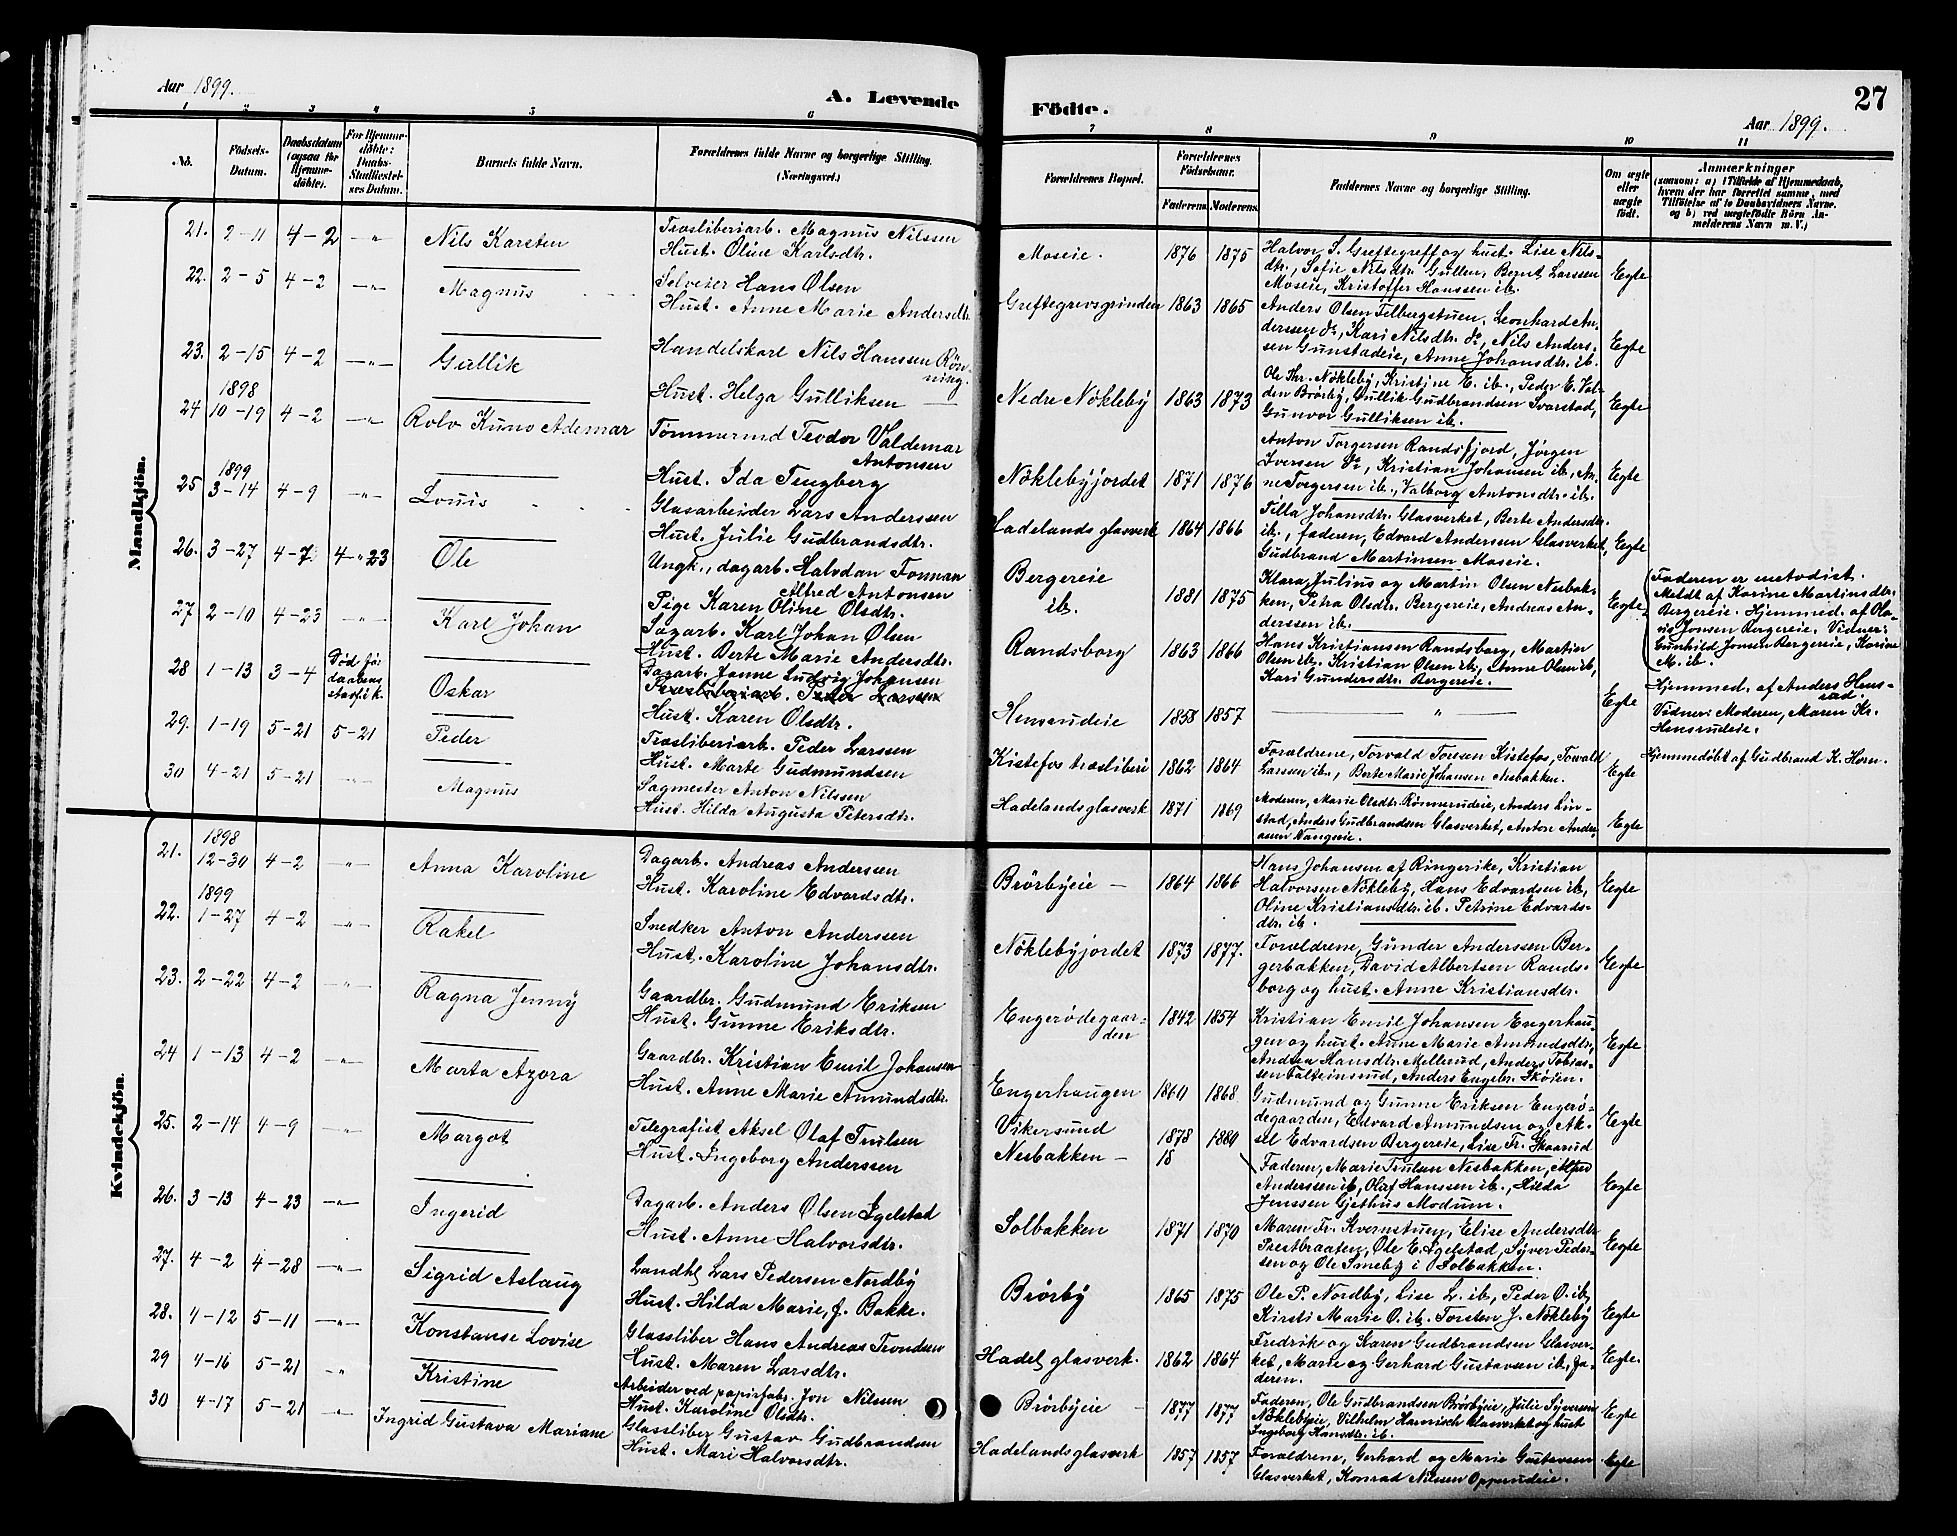 Aar 1899.
A. Levende
Födte.
27
Aar 1899.
1 2 3 4 5 6
7 8 9 10 11
No.
Födsels-
Datum.
Daabsdatum
(ogsaa for
Hjemme-
döbte).
For Hjemme-
döbte:
Daabs-
Stadfæstel-
ses Datum.
Barnets fulde Navn.
Forældrenes fulde Navne og borgerlige Stilling.
(Næringsvei.)
Forældrenes Bopæl.
Forældrenes
Födselsaar.
Faderens. Moderens.
Faddernes Navne og borgerlige Stilling.
Om ægte
eller
uægte
födt.
Anmærkninger
(saasom: a) i Tilfælde af Hjemmedaab,
hvem der har forrettet samme, med
Tilföielse af to Daabsvidners Navne,
og b) ved uægtefödte Börn An-
melderens Navn m. V.)
Mandkjön.
21. 2-11 4-2 -"- Nils Karsten
Træsliberiarb. Magnus Nilssen
Hust. Oline Karlsdtr.
Moseie. 1876 1875
Halvor S. Greftegreff og hust. Lise Nils-
dtr., Sofie Nilsdtr. Gullen, Bernt Larssen
Moseie, Kristoffer Hanssen ib.
Egte
22. 2-5 4-2 -"- Magnus
Selveier Hans Olsen
Hust. Anne Marie Andersdtr.
Greftegrevsgrinden 1863 1865
Anders Olsen Felbergstuen, Leonhard An-
derssen do, Kari Nilsdtr. do, Nils Anders-
sen Gunstadeie, Anne Johansdtr. ib.
Egte
23. 2-15 4-2 -"- Gullik
Handelskarl Nils Hanssen Rön-
ning.
Hust. Helga Gulliksen
Nedre Nökleby 1863 1873
Ole Thr. Nökleby, Kristine E. ib., Peder E. Vel-
den Brörby, Gullik Gudbrandsen Svarstad,
Gunvor Gulliksen ib.
Egte
1898
24 10-19 4-2 -"- Rolv Kuno Ademar
Tömmermd Teodor Valdemar
Antonsen
Hust. Ida Tengberg
Nöklebyjordet 1871 1876
Anton Torgersen Randsfjord, Jørgen
Iversen do, Kristian Johansen ib., An-
ne Torgersen ib., Valborg Antonsdtr. ib.
Egte
1899
25 3-14 4-9 -"- Louis
Glasarbeider Lars Anderssen
Hust. Julie Gudbrandsdtr.
Hadelands glasverk 1864 1866
Tilla Johansdtr. Glasverket, Berte Andersdtr.
ib., faderen, Edvard Anderssen Glasverket,
Gudbrand Martinsen Moseie.
Egte
26. 3-27 4-7 4-23 Ole
Ungk., dagarb. Halvdan Tonman
Alfred Antonsen
Pige Karen Oline Olsdtr.
Bergereie
ib. 1881 1875
Klara, Julius og Martin Olsen Nesbak-
ken, Petra Olsdtr. Bergereie, Andreas An-
derssen ib.
Egte
Faderen er metodist.
Meldt af Karine Martinsdtr.
Bergereie. Hjemmed. af Ola-
ie Jonsen Bergereie. Vidner:
Gunhild Jonsen Bergereie, Karine
M. ib.
27 2-10 4-23 -"- Karl Johan
Sagarb. Karl Johan Olsen
Hust. Berte Marie Andersdtr.
Randsborg 1863 1866
Hans Kristiansen Randsborg, Martin
Olsen ib., Kristian Olsen ib., Anne Olsen ib.,
Kari Gundersdtr. Bergereie.
28 1-13 3-4 Död för
daabens
stadf. k. Oskar
Dagarb. Janne Ludvig Johansen
Træsliberiarb. Peder Larssen
Hust. Karen Olsdtr.
Hensrudeie 1858 1857
"
Egte
Hjemmed. af Anders Hens-
rud.
Vidner: Moderen, Maren Kr.
Hensrudeie.
29. 1-19 5-21 5-21 Peder
Træsliberiarb. Peder Larssen
Hust. Marte Gudmundsen
Kistefos træsliberi 1862 1864
Forældrene, Torvald Toresen Kistefos, Torvald
Larssen ib., Berte Marie Johansen Nesbakken.
Egte
Hjemmedöbt af Gudbrand K. Horn.
30 4-21 5-21 -"- Magnus
Sagmester Anton Nilssen
Hust. Hilda Augusta Petersdtr.
Hadelands glasverk 1871 1869
Moderen, Marie Olsdtr. Rönnerudeie, Anders Lin-
stad, Anders Gudbrandsen Glasverket, Anton Andre-
asen Vangseie.
Egte
Kvindekjön.
1898
21. 12-30 4-2 -"- Anna Karoline
Dagarb. Andreas Andersen
Hust. Karoline Edvardsdtr.
Brörbyeie 1864 1866
Hans Johansen af Ringerike, Kristian
Halvorsen Nökleby, Hans Edvardsen ib.,
Oline Kristiansdtr. ib. Petrine Edvards-
dtr. ib.
Egte
1899
22. 1-27 4-2 -"- Rakel
Snedker Anton Anderssen
Hust. Karoline Johansdtr.
Nöklebyjordet 1873 1877.
Forældrene, Gunder Anderssen Ber-
gerbakken, David Albertsen Rands-
borg og hust. Anne Kristiansdtr.
Egte
23. 2-22 4-2 -"- Ragna Jenny
Gaardbr. Gudmund Eriksen
Hust. Gunne Eriksdtr.
Engerödegaar-
den 1842 1854
Kristian Emil Johansen Engerhau-
gen og hust. Anne Marie Amundsdtr.,
Andrea Hansdtr. Mellerud, Anders Tobias-
sen Falteinsrud, Anders Engebr. Skøien.
Egte
24 1-13 4-2 -"- Marta Azora
Gaardbr. Kristian Emil Johansen
Hust. Anne Marie Amundsdtr.
Engerhaugen 1860 1868
Gudmund og Gunne Eriksen Engerö-
degaarden, Edvard Amundsen og Ak-
sel Edvardsen Bergereie, Lise Fr. Skaarud
Egte
25. 2-14 4-9 -"- Margot
Telegrafist Aksel Olaf Trulsen
Hust. Ingeborg Anderssen
Vikersund
Nesbakken - 1878 1880
18
Faderen, Marie Trulsen Nesbakken, Alfred
Anderssen ib., Olaf Hanssen ib., Hilda
Jenssen Gjethus Modum.
Egte
26. 3-13 4-23 -"- Ingerid
Dagarb. Anders Olsen Egelstad
Hust. Anne Halvorsdtr.
Solbakken 1871 1870
Maren Fr. Kvernstuen, Elise Andersdtr
Prestbraaten, Ole E. Egelstad, Syver Peder-
sen og Ole Smeby i Solbakken.
Egte
27. 4-2 4-28 -"- Sigrid Aslaug
Landh. Lars Pedersen Nordby
Hust. Hilda Marie, f. Bakke.
Brörby 1865 1875
Ole P. Nordby, Lise L. ib., Peder O. ib,
Kirsti Marie O. ib. Torsten J. Nökleby
Egte
28. 4-12 5-11 -"- Konstanse Lovise
Glassliber Hans Andreas Trondsen
Hust. Maren Larsdtr.
Hadel. glasverk. 1862 1864
Fredrik og Karen Gudbrandsen Glasver-
ket, Marte og Gerhard Gustavsen ib., fa-
deren.
Egte.
29 4-16 5-21 -"- Kristine
Arbeider ved papirfabr. Jon Nilsen
Hust. Karoline Olsdtr.
Brörbyeie 1877 1877
Faderen, Ole Gudbrandsen Brörbyeie, Julie Syversen
Nöklebyeie, Vilhelm Harnisch Glasverket og hust
Ingeborg Hansdtr. ib.
Egte
30 4-17 5-21 -"- Ingrid Gustava Mariane
Glassliber Gustav Gudbrandsen
Hust. Mari Halvorsdtr.
Hadelands glasverk 1857 1857
Forældrene, Gerhard og Marie Gustavsen
Glasverket, Konrad Nilssen Opperudeie.
Egte